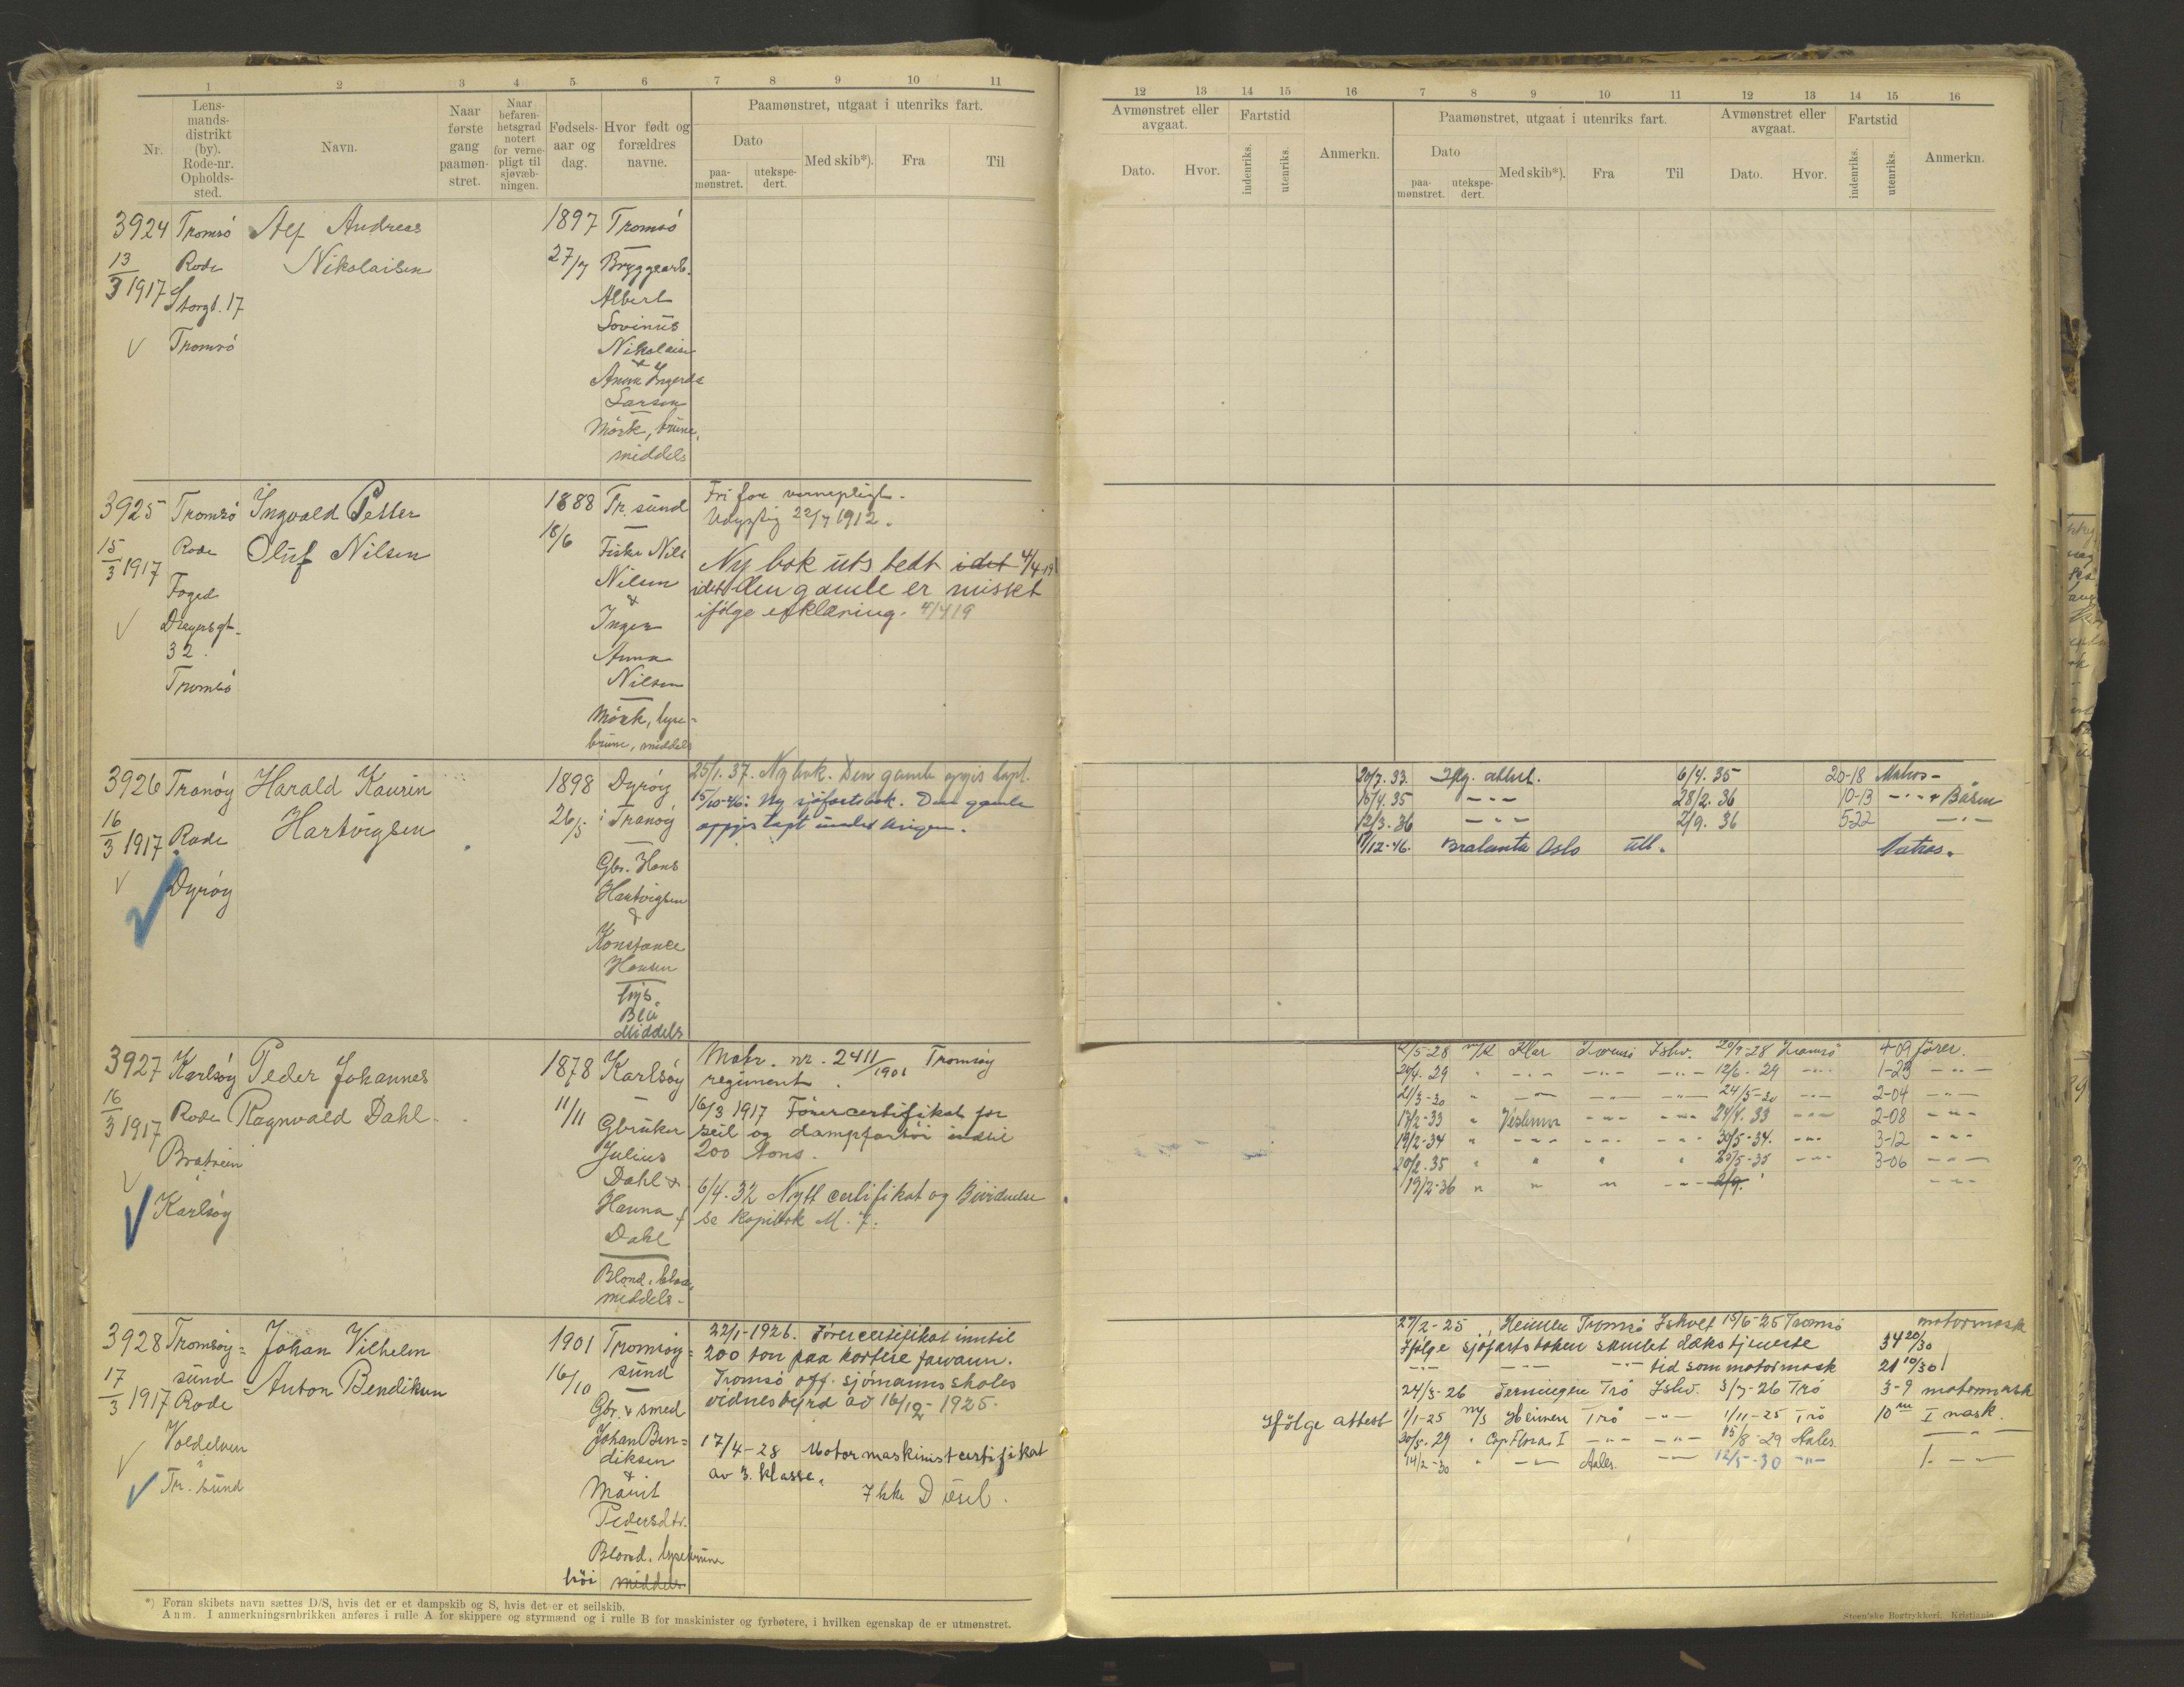 1 2 3 4 5 6 7 8 9 10 11
Nr.
Lens-
mands-
distrikt
(by).
Rode-nr.
Opholds-
sted.
Navn.
Naar
første
gang
paamøn-
stret.
Naar
befaren-
hetsgrad
notert
for verne-
pligt til
sjøvæb-
ningen.
Fødsels-
aar og
dag.
Hvor født og
forældres
navne.
Paamønstret, utgaat i utenriks fart.
Dato
paa-
mønstret.
utekspe-
dert.
Med skib*).
Fra
Til
3924 Tromsö Alf Andreas 1897 Tromsö
13/3 1917 Rode Nikolaisen 27/7 Bryggearb.
Storgt. 17 Albert
Tromsö Lovinus
Nikolaisen
&
Anna Ingerda
Larsen
Mörk, brune,
middels
3925 Tromsö Ingvald Petter 1888 Tr. sund Fri for vernepligt.
15/3 1917 Rode Oluf Nilsen 18/6 Udygtig 22/7 1912.
Foged Fisker Nils Ny bok utstedt idet 4/4 19
Dreyersgt. Nilsen idet den gamle er mistet
32. & ifölge erklæring. 4/4 19
Tromsö Inger
Anna
Nilsen
Mörk, lyse-
brune, middels
3926 Tranöy Harald Kaurin 1898 Dyröy 25/1. 37. Ny bok. Den gamle opgis tapt.
16/3 1917 Rode Hartvigsen 26/5 i Tranöy 15/10-46: Ny sjöfartsbok. Den gamle
Dyröy oppgis tapt under krigen.
Gbr. Hans
Hartvigsen
&
Konstance
Hansen
lys.
Blå
Middels
3927 Karlsöy Peder Johannes 1878 Karlsöy Matr. nr. 24 11/1901 Tromsöy
16/3 1917 Rode Ragnvald Dahl. 11/11 regiment.
Karlsöy Gbruker 16/3 1917 Förercertifikat for
Julius seil og dampfartöi indtil
Dahl & 200 tons.
Hanna 6/4. 32 Nytt certifikat og
Dahl se kopibok M. 7.
Blond, blaa,
middels-
3928 Tromsöy= Johan Vilhelm 1901 Tromsöy= 22/1-1926. Förercertifikat inntil
17/3 1917 sund Anton Bendiksen 16/10 sund 200 ton paa kortere farvann.
Rode Gbr. & smed Tromsö off. sjömannsskoles
Tr. sund Johan Ben= vidnesbyrd av 16/12-1925.
diksen 17/4-28 Motormaskinistcertifikat
& av 3. klasse.
Marit Ikke Diesel.
Pedersdtr.
Blond. lysebrune
höi middels
*) Foran skibets navn sættes D/S, hvis det er et dampskib og S, hvis det er et seilskib.
Anm. I anmerkningsrubrikken anføres i rulle A for skippere og styrmænd og i rulle B for maskinister og fyrbøtere, i hvilken egenskap de er utmønstret.
12 13 14 15 16 7 8 9 10 11 12 13 14 15 16
Avmønstret eller
avgaat.
Dato.
Hvor.
Fartstid
indenriks.
utenriks.
Anmerkn.
Paamønstret, utgaat i utenriks fart.
Dato
paa-
mønstret.
utekspe-
dert.
Med skib*).
Fra
Til
Avmønstret eller
avgaat.
Dato.
Hvor.
Fartstid
indenriks.
utenriks.
Anmerkn.
20/7. 33. Iflg. attest. 6/4. 35 20-18 Matros-
15/4. 35 -"- 28/2. 36 10-13 -"- & Båsm
12/3. 36 -"- 2/9. 36 5-22 -"-
17/12-46. Bralanta Oslo Utl. Matros.
2/5-28 m/k Klar Tromsö Ishv. 20/9-28 Tromsö 4-09 förer.
20/4. 29 " -"- -"- -"- 12/6-29 -"- 1-23 -"-
21/3-30 " -"- -"- -"- 24/5-30 -"- 2-04 -"-
17/2-33 " Veslemor -"- -"- 24/4. 33 -"- 2-08 -"-
19/2-34 " -"- -"- -"- 30/5-34. -"- 3-12 -"-
20/2. 35 " " " " 25/5-35 -"- 3-06 -"-
19/2-36 " " " -"- 2/9. -"-
27/2-25 Heimen Tromsö Ishvet 15/6-25 Tromsö motormask
Ifölge sjöfartsboken samlet dækstjeneste 34 20/30
-"- -"- -"- tid som motormask 21 10/30
24/3-26 Terningen Trö Ishv. 3/7-26 Trö 3-9 motormask
Ifölge attest 1/1-25 m/s Heimen Trö -"- 1/11-25 Trö 10 m I mask.
30/5. 29 " Cap Flora I -"- -"- 15/8-29 Aales. -"-
14/2-30 " -"- Aales. -"- 12/5-30 -"- 1. -"-
Steen'ske Bogtrykkeri. Kristiania